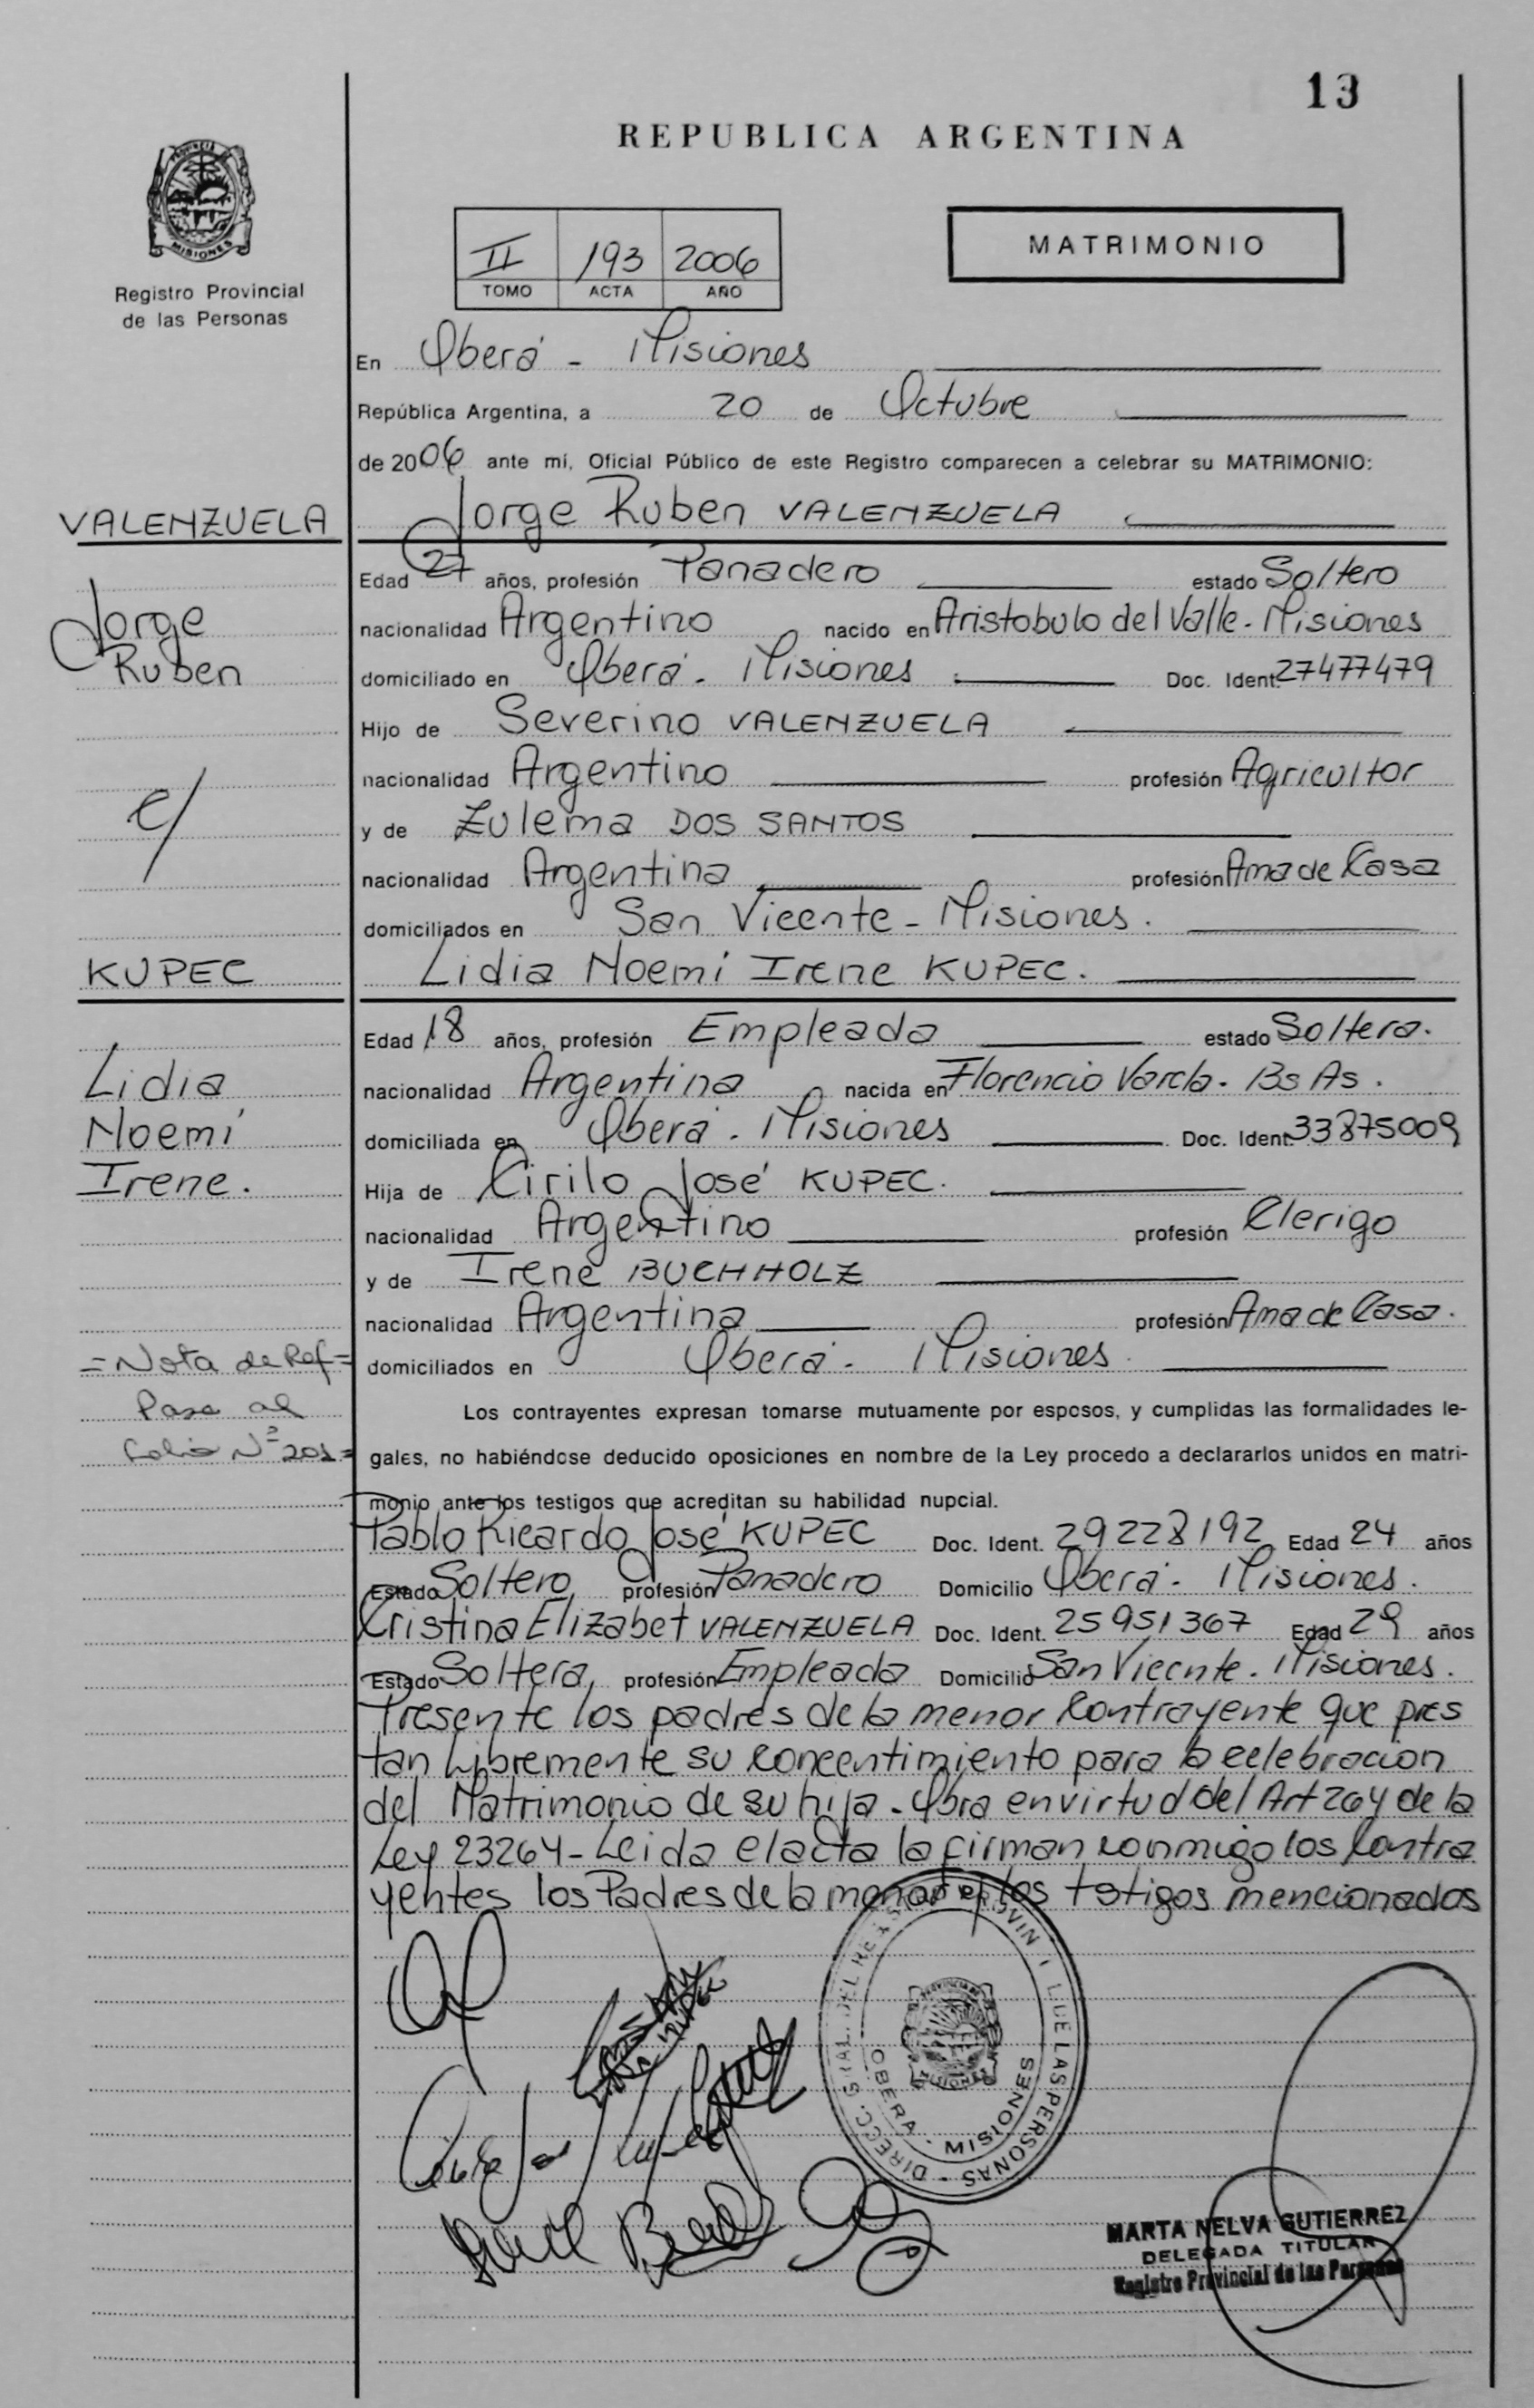 13
REPUBLICA ARGENTINA
MISIONES
Registro Provincial
de las Personas
II 193 2006
TOMO ACTA AÑO
MATRIMONIO
En Oberá - Misiones
República Argentina, a 20 de Octubre
de 2006 ante mí, Oficial Público de este Registro comparecen a celebrar su MATRIMONIO:
VALENZUELA
Jorge Ruben VALENZUELA
Edad 27 años, profesión Panadero estado Soltero
Jorge
nacionalidad Argentino nacido en Aristobulo del Valle - Misiones
Ruben
domiciliado en Oberá - Misiones Doc. Ident. 27477479
Hijo de Severino VALENZUELA
nacionalidad Argentino profesión Agricultor
c/
y de Zulema DOS SANTOS
nacionalidad Argentina profesión Ama de Casa
domiciliados en San Vicente - Misiones.
KUPEC
Lidia Noemí Irene KUPEC.
Edad 18 años, profesión Empleada estado Soltera.
Lidia
nacionalidad Argentina nacida en Florencio Varela - Bs As.
Noemí
domiciliada en Oberá - Misiones Doc. Ident. 33875009
Irene.
Hija de Cirilo José KUPEC.
nacionalidad Argentino profesión Clerigo
y de Irene BUCHHOLZ
nacionalidad Argentina profesión Ama de Casa.
= Nota de Ref =
domiciliados en Oberá - Misiones
Pasa al
Los contrayentes expresan tomarse mutuamente por esposos, y cumplidas las formalidades le-
folio Nº 201 =
gales, no habiéndose deducido oposiciones en nombre de la Ley procedo a declararlos unidos en matri-
monio ante los testigos que acreditan su habilidad nupcial.
Pablo Ricardo José KUPEC Doc. Ident. 29228192 Edad 24 años
Estado Soltero profesión Panadero Domicilio Oberá - Misiones.
Cristina Elizabet VALENZUELA Doc. Ident. 25951367 Edad 29 años
Estado Soltera, profesión Empleada Domicilio San Vicente - Misiones.
Presente los padres de la menor Contrayente que pres
tan Libremente su concentimiento para la celebracion
del Matrimonio de su hija - Obra en virtud del Art 264 de la
Ley 23264 - Leida el acta la firman conmigo los Contra
yentes los Padres de la menor y los testigos mencionados
DIRECC. GRAL. DEL REGISTRO PROVINCIAL DE LAS PERSONAS -
OBERA - MISIONES
MARTA NELVA GUTIERREZ
DELEGADA TITULAR
Registro Provincial de las Personas